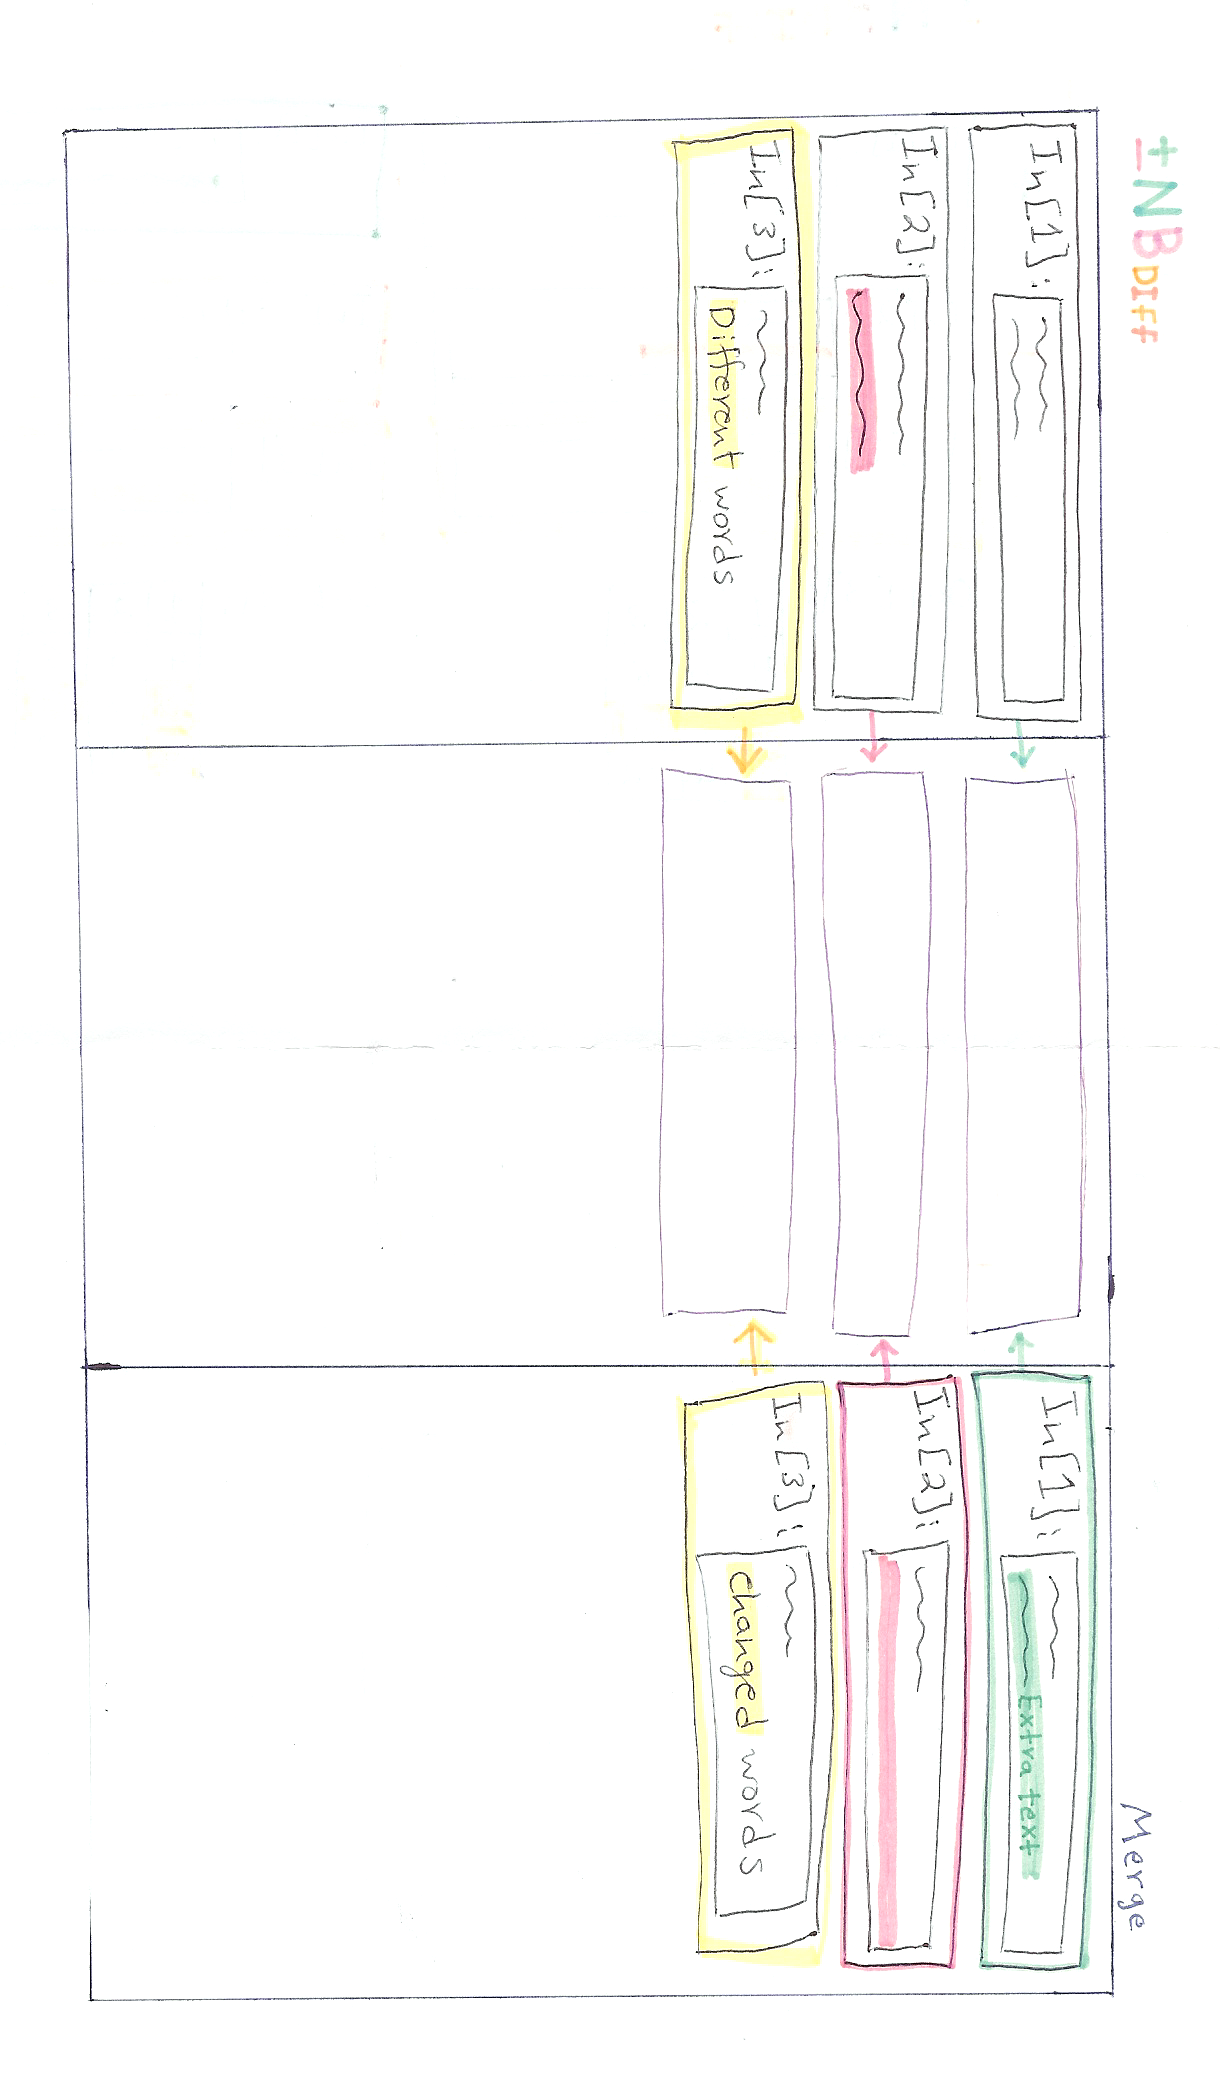 ±NBDIff
Merge
In[1]:
In[2]:
In[3]:
Different words
In[1]:
Extra text
In[2]:
In[3]:
changed words